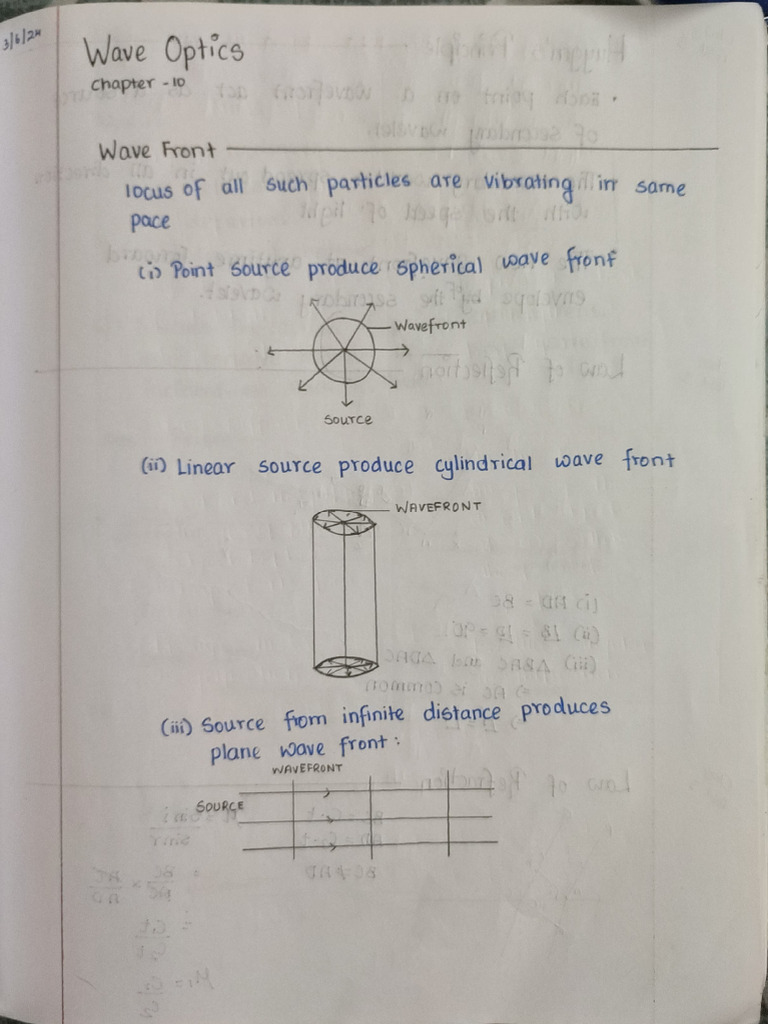 3/6/24
Wave Optics
Chapter - 10
Wave Front
locus of all such particles are vibrating in same
pace
(i) Point source produce spherical wave front
Wavefront
Source
(ii) Linear source produce cylindrical wave front
WAVEFRONT
(iii) Source from infinite distance produces
plane wave front :
WAVEFRONT
SOURCE